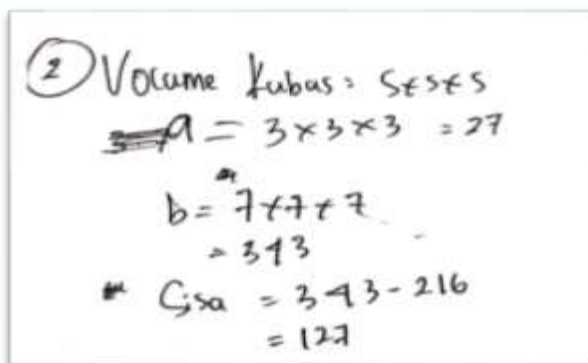 2 Volume Kubus = S×S×S
a = 3×3×3 = 27
b = 7×7×7
= 343
Sisa = 343 - 216
= 127